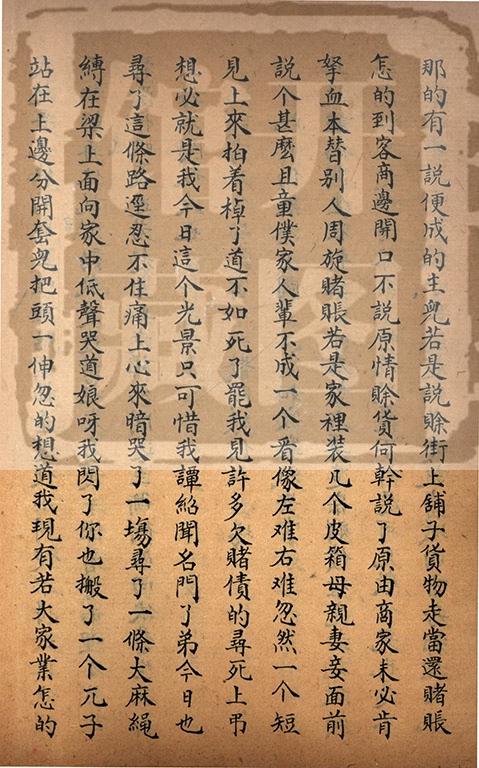 那的有一説便成的主兒若是説賒街上舖子貨物走當還賭賬
怎的到客商邊開口不説原情賒貨何幹説了原由商家未必肯
拏血本替别人周旋賭賬若是家裡装几个皮箱母親妻妾面前
説个甚麽且童僕家人輩不成一个看像左难右难忽然一个短
見上來拍着棹了道不如死了罷我見許多欠賭債的尋死上弔
想必就是我今日這个光景只可惜我譚紹聞名門了弟今日也
尋了這條路逕忍不住痛上心來暗哭了一塲尋了一條大麻繩
縛在梁上面向家中低聲哭道娘呀我閃了你也搬了一个兀子
站在上邊分開套兒把頭一伸忽的想道我現有若大家業怎的